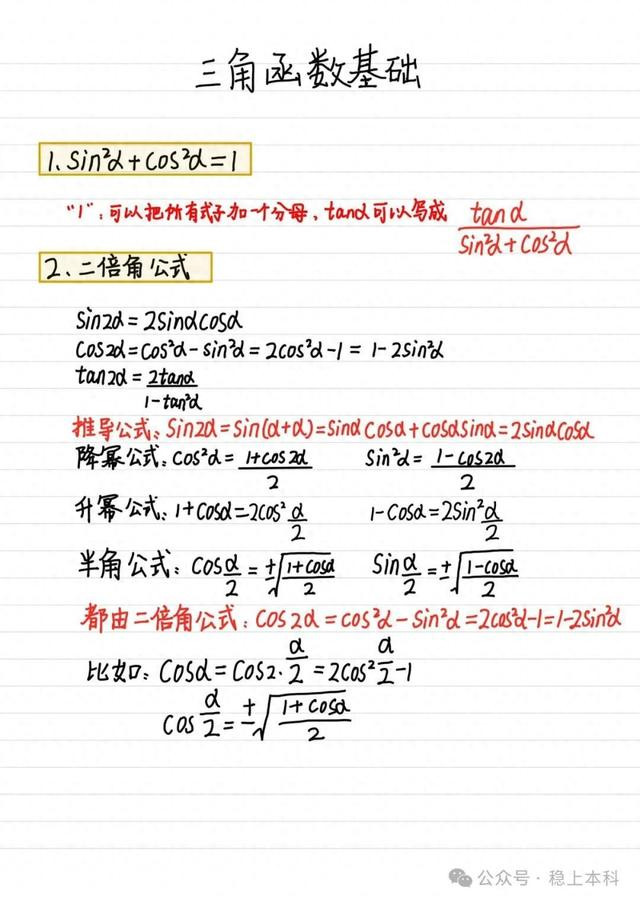 三角函数基础
1、sin²α+cos²α=1
"1"：可以把所有式子加一个分母，tanα可以写成 tanα/(sin²α+cos²α)
2、二倍角公式
sin2α=2sinαcosα
cos2α=cos²α-sin²α=2cos²α-1=1-2sin²α
tan2α=2tanα/(1-tan²α)
推导公式：sin2α=sin(α+α)=sinαcosα+cosαsinα=2sinαcosα
降幂公式：cos²α=(1+cos2α)/2 sin²α=(1-cos2α)/2
升幂公式：1+cosα=2cos²α/2 1-cosα=2sin²α/2
半角公式：cosα/2=±√((1+cosα)/2) sinα/2=±√((1-cosα)/2)
都由二倍角公式：cos2α=cos²α-sin²α=2cos²α-1=1-2sin²α
比如：cosα=cos2·α/2=2cos²α/2-1
cosα/2=±√((1+cosα)/2)
公众号·稳上本科